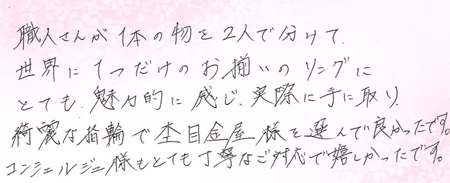 職人さんが1本の物を2人で分けて、
世界に1つだけのお揃いのリングに
とても、魅力的に感じ、実際に手に取り、
綺麗な指輪で杢目金屋様を選んで良かったです。
コンシェルジュ様もとても丁寧なご対応で嬉しかったです。